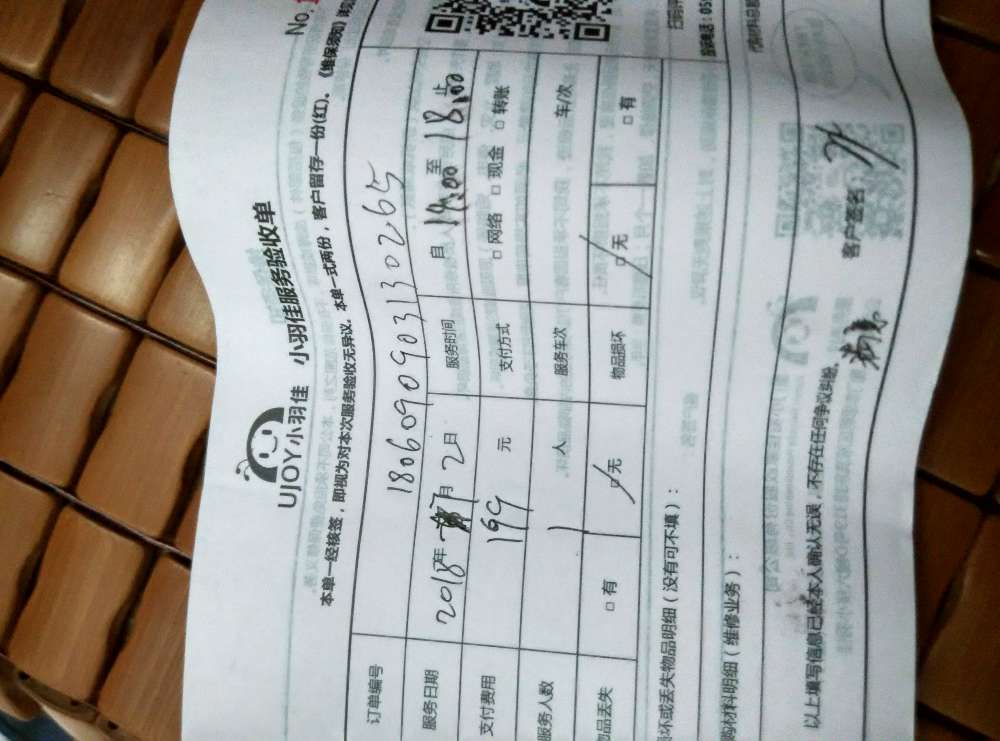 No.
UJOY小羽佳 小羽佳服务验收单
本单一经核签，即视为对本次服务验收无异议。本单一式两份，客户留存一份(红)。《维保须知》
订单编号 1806090903130265
服务日期 2018年7月2日 服务时间 自14:00至18:00止
支付费用 199元 支付方式 □网络 □现金 □转账
服务人数 1人 服务车次 车/次
品丢失 □有 □无 物品损坏 □无 □有
坏或丢失物品明细（没有可不填）：
购材料明细（维修业务）：
以上填写信息已经本人确认无误，不存在任何争议纠纷。
客户签名：